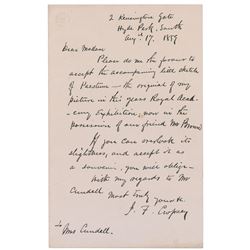 2 Kensington Gate
Hyde Park, South
Augst 17. 1859
Dear Madam
Please do me the favour to
accept the accompanying little sketch
of Paestum — the original of my
picture in this years Royal Acad-
emy Exhibition, now in the
possession of our friend Mr
If you can overlook its
slightness, and accept it as
a souvenir, you will oblige
with my regards to Mr
Cundell
Most truly yours
J. F. Cropsey
To
Mrs Cundell.